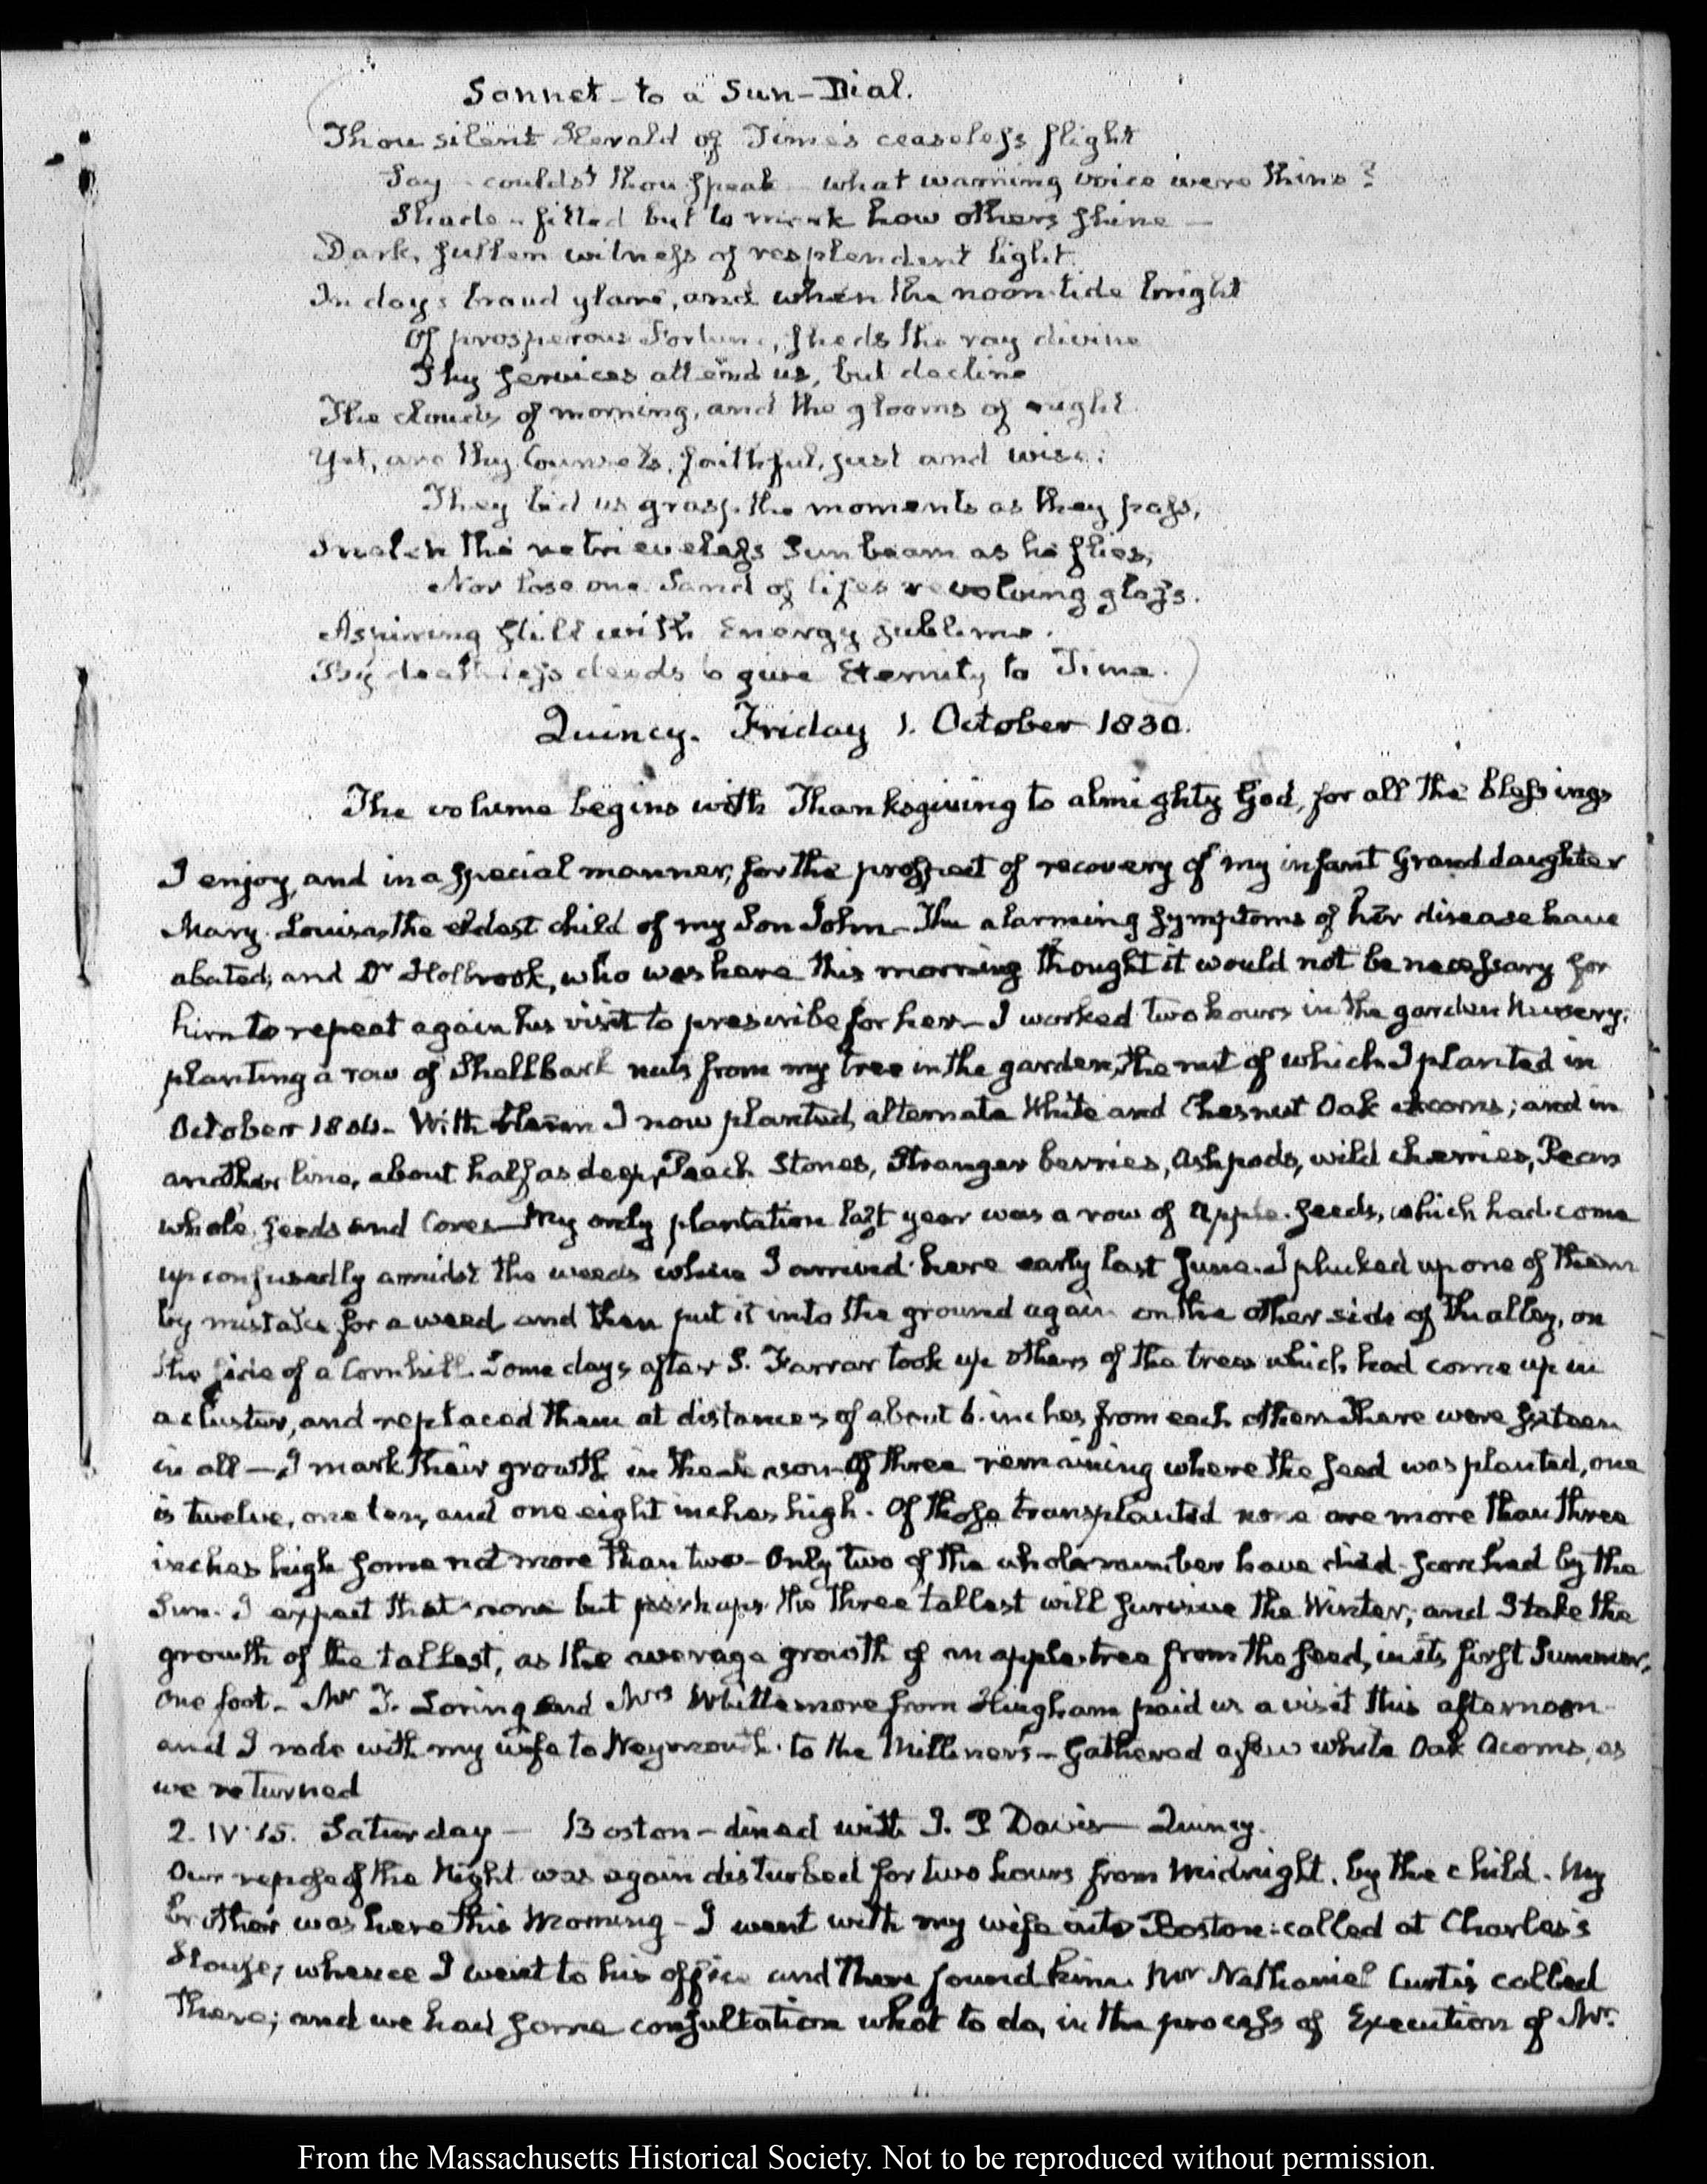 Sonnet - to a Sun-Dial.
Thou silent Herald of Time's ceaseless flight
Say - couldst thou speak - what warning voice were thine?
Shade - fitted but to mark how others shine -
Dark, sullen witness of resplendent light.
In day's broad glare, and when the noontide bright
Of prosperous Fortune, sheds the ray divine
Thy services attend us, but decline
The clouds of morning, and the glooms of night.
Yet, are thy Counsels, faithful, just and wise:
They bid us grasp the moments as they pass,
Snatch the retrieveless Sunbeam as he flies,
Nor lose one Sand of life's revolving glass.
Aspiring still with Energy sublime.
By deathless deeds to give Eternity to Time.
Quincy. Friday 1. October 1830.
The volume begins with Thanksgiving to almighty God, for all the blessings
I enjoy, and in a special manner, for the prospect of recovery of my infant Granddaughter
Mary-Louisa, the eldest child of my Son John - The alarming symptoms of her disease have
abated; and Dr Holbrook, who was here this morning thought it would not be necessary for
him to repeat again his visit to prescribe for her - I worked two hours in the garden Nursery;
planting a row of Shellbark nuts from my tree in the garden, the nut of which I planted in
October 1804. With them I now planted, alternate White and Chesnut Oak acorns; and in
another line, about half as deep, Peach Stones, Stranger berries, Ash pods, wild cherries, Pears
whole, seeds and Cores - My only plantation last year was a row of Apple-seeds, which had come
up confusedly amidst the weeds when I arrived here early last June. I plucked up one of them
by mistake for a weed and then put it into the ground again on the other side of the alley, on
the side of a Cornhill. Some days after S. Farrar took up others of the trees which had come up in
a cluster, and replaced them at distances of about 6. inches from each other. There were sixteen
in all - I mark their growth in the season. Of three remaining where the seed was planted, one
is twelve, one ten, and one eight inches high. Of those transplanted none are more than three
inches high some not more than two - Only two of the whole number have died - scorched by the
Sun. I expect that none but perhaps the three tallest will survive the Winter; and I take the
growth of the tallest, as the average growth of an apple-tree from the seed, in its first Summer,
one foot - Mr T. Loring and Mrs Whittemore from Hingham paid us a visit this afternoon
and I rode with my wife to Weymouth. to the Milliner's - Gathered a few white Oak Acorns, as
we returned
2. IV:15. Saturday - Boston - dined with I. P. Davis - Quincy.
Our repose of the Night was again disturbed for two hours from Midnight, by the child. My
brother was here this Morning - I went with my wife into Boston: called at Charles's
House; whence I went to his office and there found him. Mr Nathaniel Curtis called
there; and we had some consultation what to do, in the process of Execution of Mr.
From the Massachusetts Historical Society. Not to be reproduced without permission.